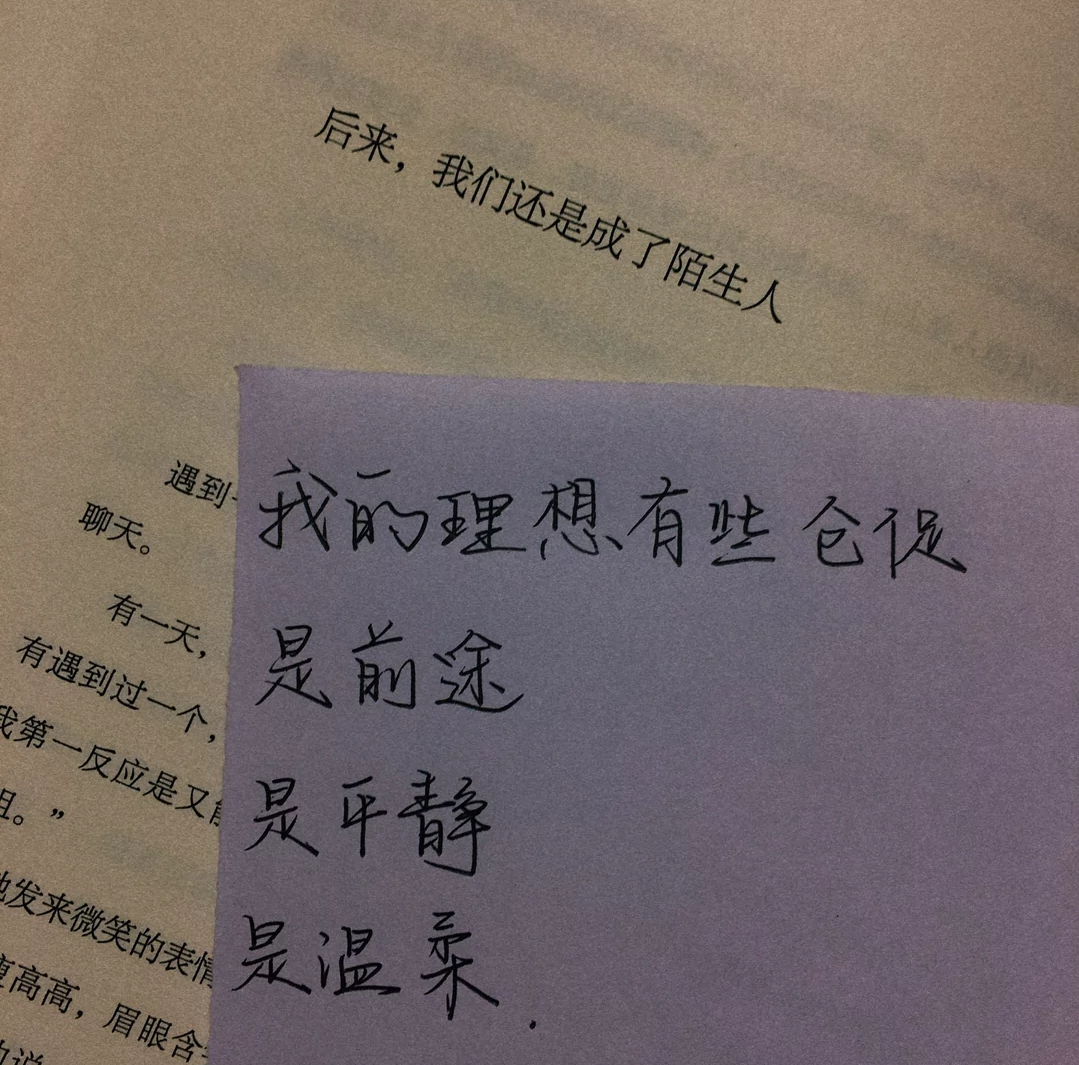 后来，我们还是成了陌生人
遇到
聊天。
有一天，
有遇到过一个，
我第一反应是又
姐。”
她发来微笑的表情
瘦高高，眉眼含
我的理想有些仓促
是前途
是平静
是温柔.